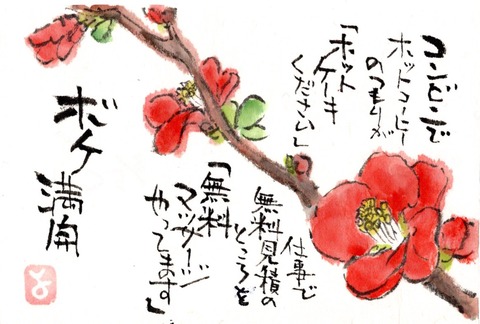 コンビニで
ホットコーヒー
のつもりが
「ホット
ケーキ
ください」
仕事で
無料見積の
ところを
「無料
マッサージ
やってます」
ボケ満開